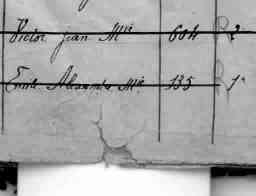 Victor Jean Mie 604 R 2
Emile Alexandre Mie 135 R 1